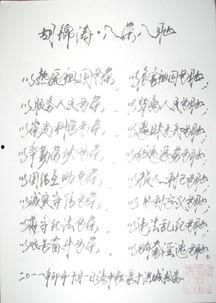 胡锦涛·八荣八耻
以热爱祖国为荣 以危害祖国为耻
以服务人民为荣 以背离人民为耻
以崇尚科学为荣 以愚昧无知为耻
以辛勤劳动为荣 以好逸恶劳为耻
以团结互助为荣 以损人利己为耻
以诚实守信为荣 以见利忘义为耻
以遵纪守法为荣 以违法乱纪为耻
以艰苦奋斗为荣 以骄奢淫逸为耻
二〇一